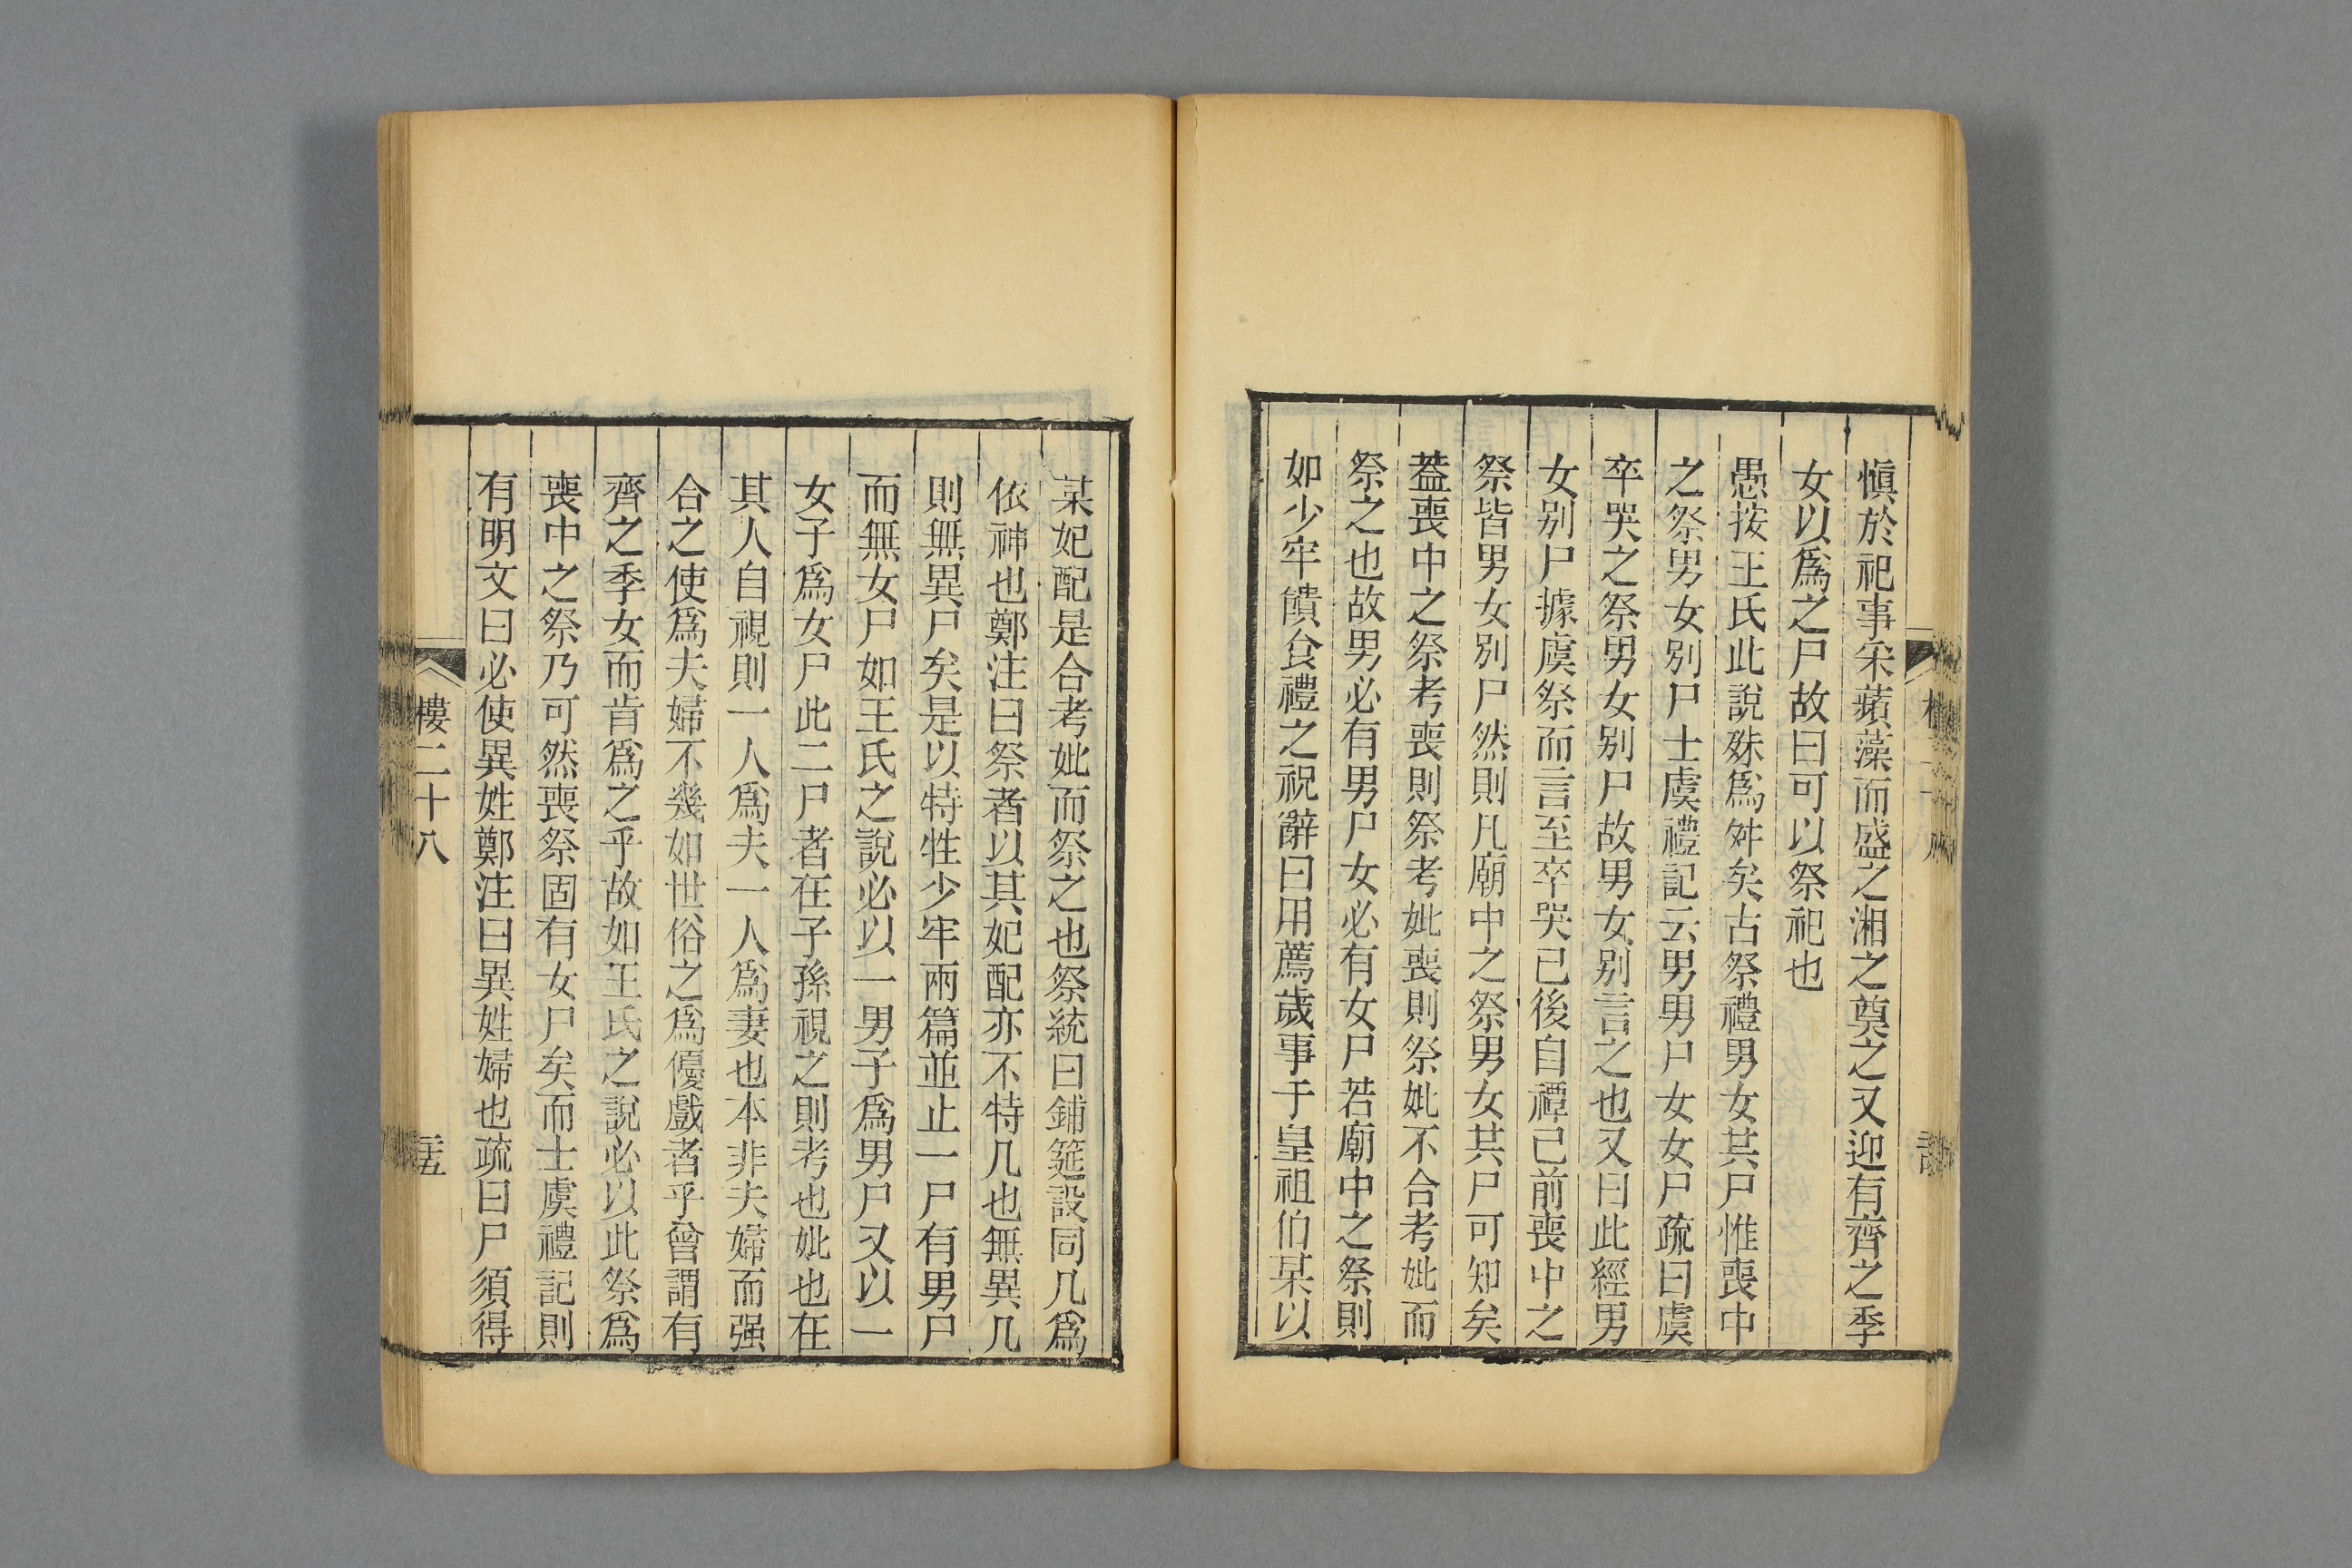 慎於祀事采蘋藻而盛之湘之奠之又迎有齊之季
女以爲之尸故曰可以祭祀也
愚按王氏此說殊爲舛矣古祭禮男女其尸惟喪中
之祭男女別尸士虞禮記云男男尸女女尸疏曰虞
卒哭之祭男女別尸故男女別言之也又曰此經男
女別尸據虞祭而言至卒哭已後自禫已前喪中之
祭皆男女別尸然則凡廟中之祭男女其尸可知矣
葢喪中之祭考喪則祭考妣喪則祭妣不合考妣而
祭之也故男必有男尸女必有女尸若廟中之祭則
如少牢饋食禮之祝辭曰用薦歲事于皇祖伯某以
某妃配是合考妣而祭之也祭統曰鋪筵設同几爲
依神也鄭注曰祭者以其妃配亦不特几也無異几
則無異尸矣是以特牲少牢兩篇並止一尸有男尸
而無女尸如王氏之說必以一男子爲男尸又以一
女子爲女尸此二尸者在子孫視之則考也妣也在
其人自視則一人爲夫一人爲妻也本非夫婦而强
合之使爲夫婦不幾如世俗之爲優戲者乎曾謂有
齊之季女而肯爲之乎故如王氏之說必以此祭爲
喪中之祭乃可然喪祭固有女尸矣而士虞禮記則
有明文曰必使異姓鄭注曰異姓婦也疏曰尸須得
樓二十八